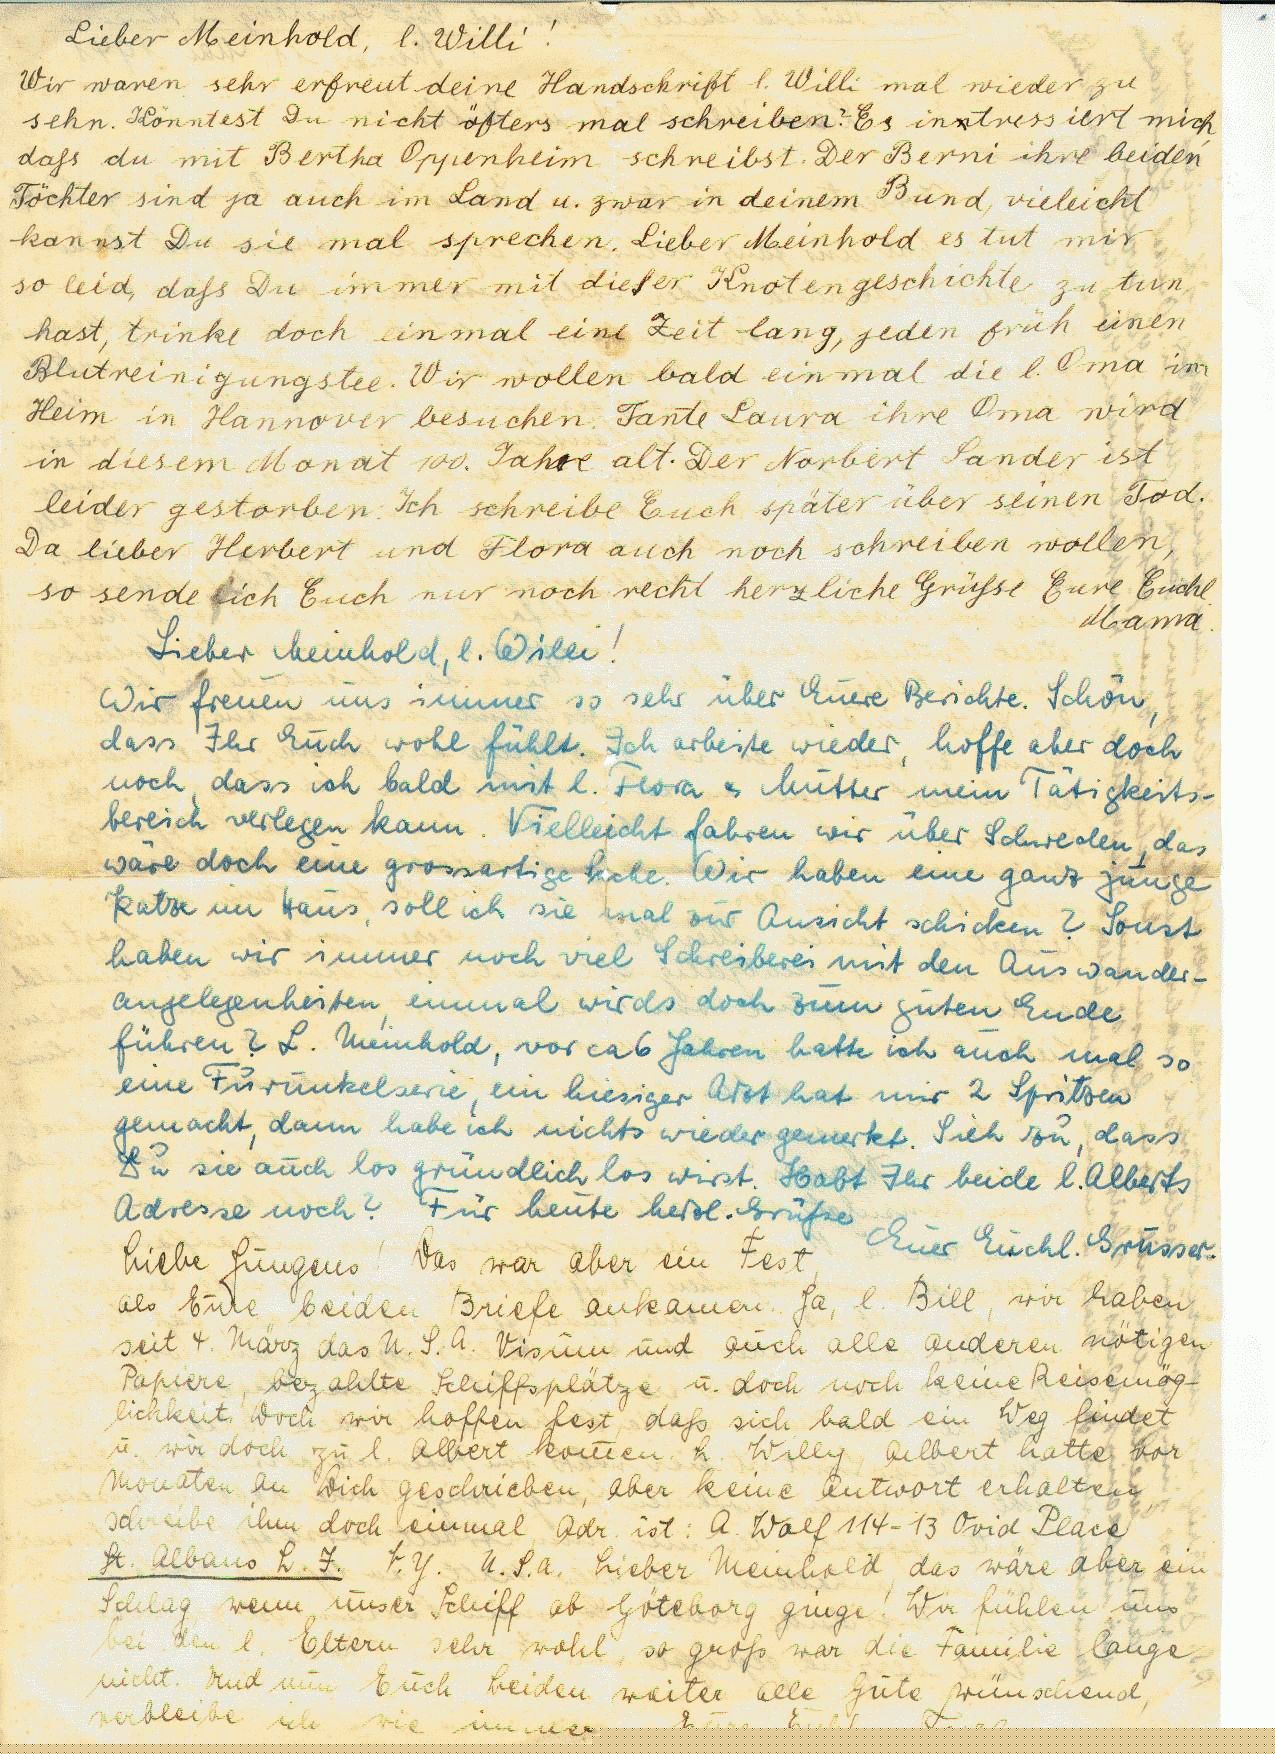 Lieber Meinhold, l. Willi!
Wir waren sehr erfreut deine Handschrift l. Willi mal wieder zu
sehn. Könntest Du nicht öfters mal schreiben? Es intressiert mich,
dafs du mit Bertha Oppenheim schreibst. Der Berni ihre beiden
Töchter sind ja auch im Land u. zwar in deinem Bund, vieleicht
kannst Du sie mal sprechen. Lieber Meinhold es tut mir
so leid, dafs Du immer mit dieser Knotengeschichte zu tun
hast, trinke doch einmal eine Zeit lang, jeden früh einen
Blutreinigungstee. Wir wollen bald einmal die l. Oma im
Heim in Hannover besuchen. Tante Laura ihre Oma wird
in diesem Monat 100. Jahre alt. Der Norbert Sander ist
leider gestorben. Ich schreibe Euch später über seinen Tod.
Da lieber Herbert und Flora auch noch schreiben wollen,
so sende ich Euch nur noch recht herzliche Grüfse Eure Euchl.
Mama.
Lieber Meinhold, l. Willi!
Wir freuen uns immer so sehr über Euere Berichte. Schön,
dass Ihr Euch wohl fühlt. Ich arbeite wieder, hoffe aber doch
noch, dass ich bald mit l. Flora & Mutter mein Tätigkeits-
bereich verlegen kann. Vielleicht fahren wir über Schweden, das
wäre doch eine grossartige Sache. Wir haben eine ganz junge
Katze im Haus, soll ich sie mal zur Ansicht schicken? Sonst
haben wir immer noch viel Schreiberei mit den Auswander-
angelegenheiten, einmal wirds doch zum guten Ende
führen? L. Meinhold, vor ca 6 Jahren hatte ich auch mal so
eine Furunkelserie, ein hiesiger Arzt hat mir 2 Spritzen
gemacht, dann habe ich nichts wieder gemerkt. Sieh zu, dass
Du sie auch los gründlich los wirst. Habt Ihr beide l. Alberts
Adresse noch? Für heute herzl. Grüfse
Euer Euchl. Grüsser.
Liebe Jungens! Das war aber ein Fest,
als Eure beiden Briefe ankamen. Ja, l. Bill, wir haben
seit 4. März das U.S.A. Visum und auch alle anderen nötigen
Papiere, bezahlte Schiffsplätze u. doch noch keine Reisemög-
lichkeit. Doch wir hoffen fest, dafs sich bald ein Weg findet
u. wir doch zu l. Albert komen. L. Willy Albert hatte vor
Monaten an Dich geschrieben, aber keine Antwort erhalten,
schreibe ihm doch einmal Adr. ist: A. Wolf 114-13 Ovid Place
St. Albans L. I. N.Y. U.S.A. Lieber Meinhold, das wäre aber ein
Schlag, wenn unser Schiff ab Göteborg ginge! Wir fühlen uns
bei den l. Eltern sehr wohl, so grofs war die Familie lange
nicht. Und nun Euch beiden weiter alle Gute wünschend,
verbleibe ich wie immer Eure Euchl.